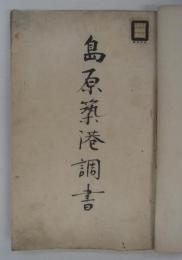 島原築港調書